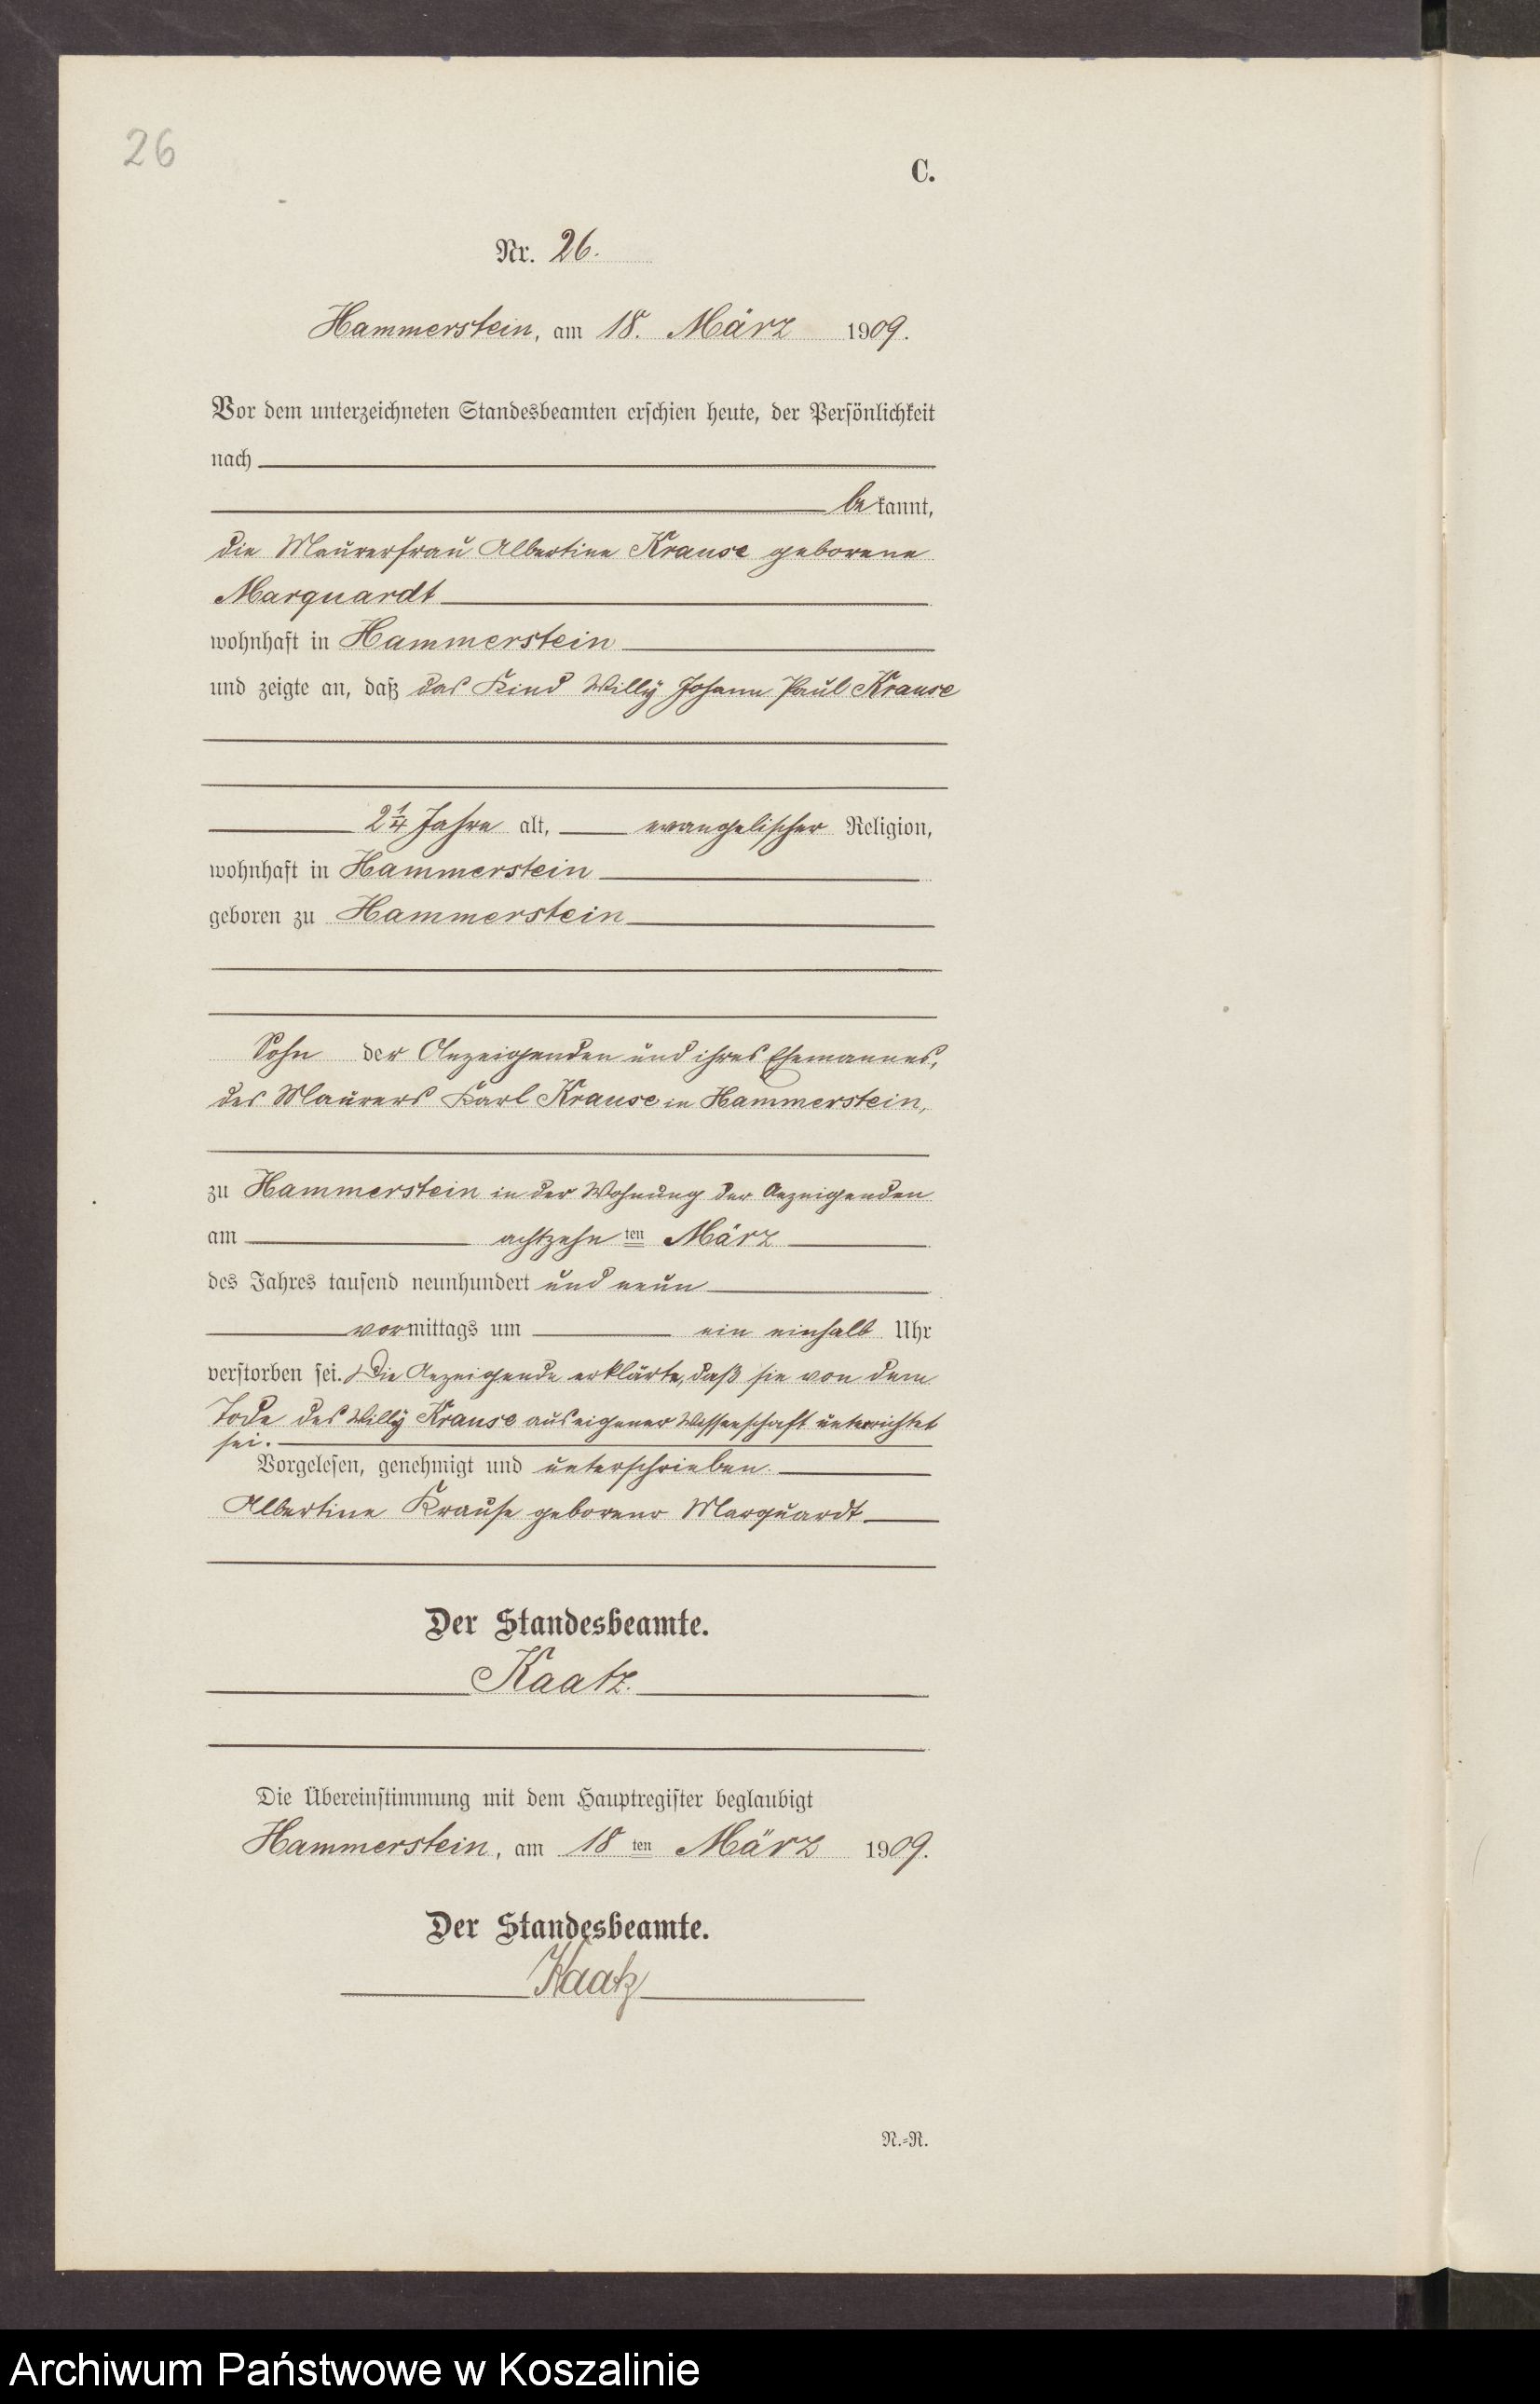 26
C.
Nr. 26.
Hammerstein, am 18. März 1909.
Vor dem unterzeichneten Standesbeamten erschien heute, der Persönlichkeit
nach
bekannt,
die Maurerfrau Albertine Krause geborene
Marquardt
wohnhaft in Hammerstein
und zeigte an, daß das Kind Willy Johann Paul Krause
2 1/4 Jahre alt, evangelischer Religion,
wohnhaft in Hammerstein
geboren zu Hammerstein
Sohn der Anzeigenden und ihres Ehemannes,
des Maurers Karl Krause in Hammerstein,
zu Hammerstein in der Wohnung der Anzeigenden
am achtzehnten März
des Jahres tausend neunhundert und neun
vormittags um ein einhalb Uhr
verstorben sei. Die Anzeigende erklärte, daß sie von dem
Tode des Willy Krause aus eigener Wissenschaft unterrichtet
sei.
Vorgelesen, genehmigt und unterschrieben.
Albertine Krause geborene Marquardt
Der Standesbeamte.
Kaatz.
Die Übereinstimmung mit dem Hauptregister beglaubigt
Hammerstein, am 18ten März 1909.
Der Standesbeamte.
Kaatz
N.=R.
Archiwum Państwowe w Koszalinie